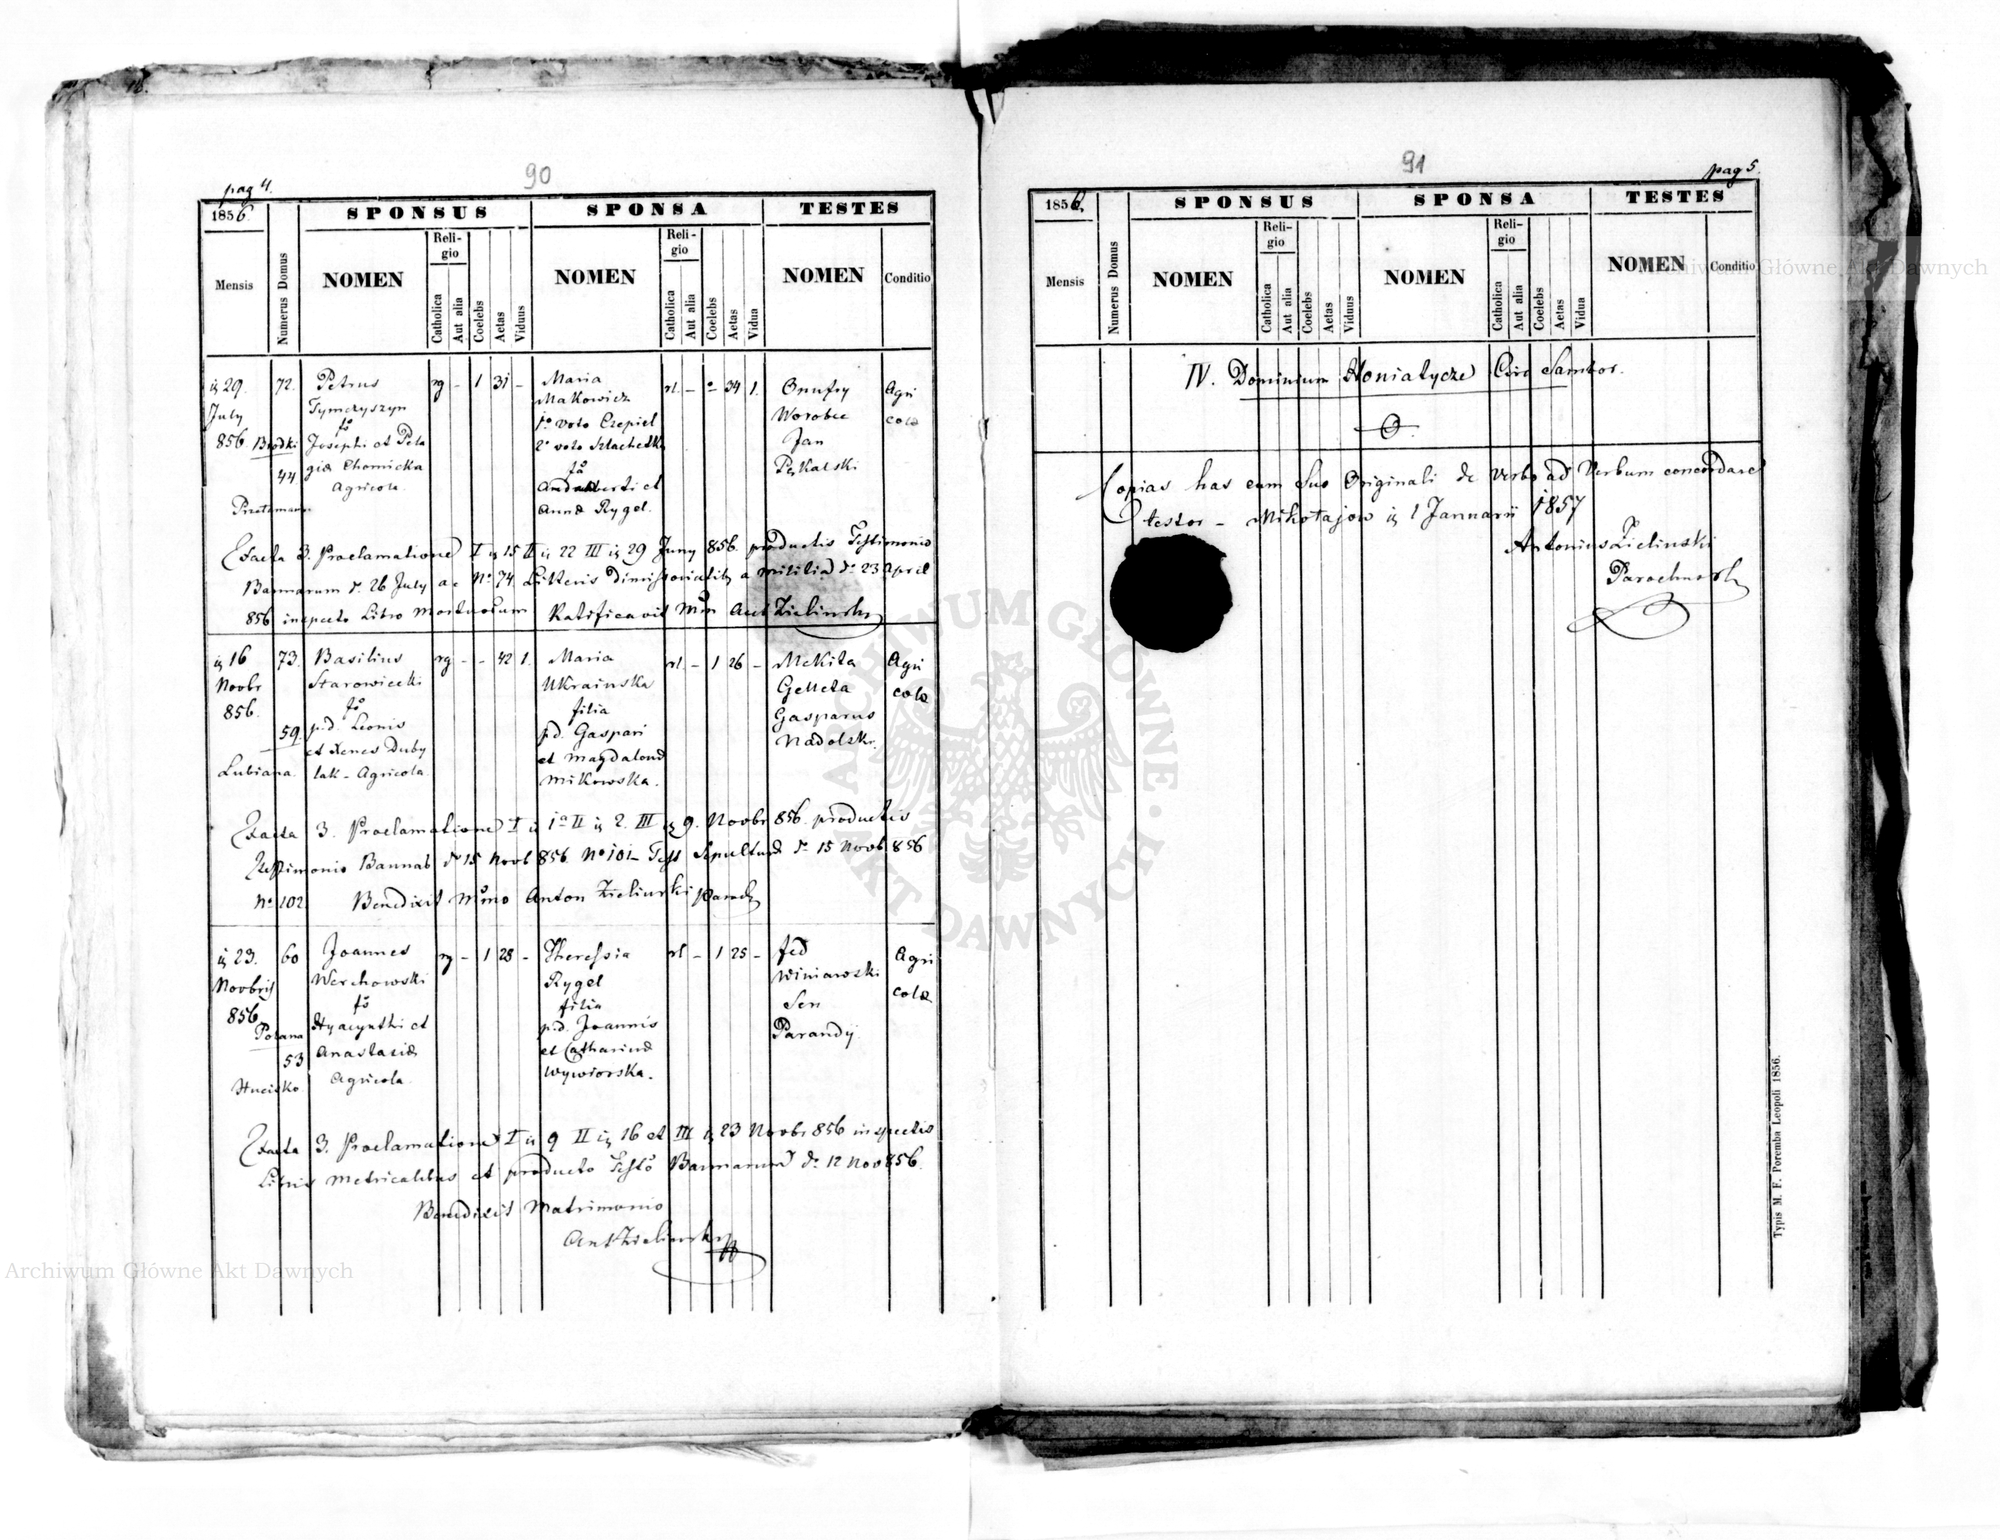 16.
90
pag 4.
1856.
SPONSUS
SPONSA
TESTES
Mensis
Numerus Domus
NOMEN
Religio
Catholica
Aut alia
Coelebs
Aetas
Viduus
NOMEN
Religio
Catholica
Aut alia
Coelebs
Aetas
Vidua
NOMEN
Conditio
29. July 856
72.
Brodki
44
Petrus
Tymczyszyn
Josephi et Pela
giæ Chomicka
Agricola.
rg - 1 31 -
Maria
Makowicz
1º voto Czepiel
2º voto Szlachetka
et
Annæ Rygel.
rl. - - 34 1.
Onufry
Worobec
Jan
Pękalski
Agri
colæ
Facta 3. Proclamatione I 15 II 22 III 29 Juny 856. productis Testimonio
Bannorum d. 26 July a c Nº 74. Litteris Dimissorialib a Militiæ d. 23 April
856 inspecto Libro Mortuorum Ratificavit Ant Zielinski
16 Novbr 856.
73.
59.
Lubiana.
Basilius
Starowiecki
p.d. Leonis
et Duby
lak - Agricola
rg - - 42 1.
Maria
Ukrainska
filia
p.d. Gaspari
et Magdalenæ
Mikowska.
rl - 1 26 -
Mekita
Gelleta
Gasparus
Nadolski.
Agri
colæ
Facta 3. Proclamatione I 1ª II 2. III 9. Novbr 856. productis
Testimonio Bannab dº 15 Novb 856. Nº 101 - Test Sepulturæ d. 15 Novb 856
Nº 102. Benedixit Anton Zielinski Paroch
23. Novbris 856
60
Polana
53
Hucisko
Joannes
Werchowski
Hyacynthi et
Anastasiæ
Agricola
rg - 1 28 -
Theressia
Rygel
filia
p.d. Joannis
et Catharinæ
Wywiorska.
rl - 1 25 -
fed
Winiawski
Sen
Parandij
Agri
colæ
Facta 3. Proclamatione I 9 II 16 et III 23 Novbr 856 inspectis
Libris Metricalibus et producto Bannorum d. 12 Nov 856.
Benedixit Matrimonio
Ant Zielinski
91
pag 5.
1856.
SPONSUS
SPONSA
TESTES
Mensis
Numerus Domus
NOMEN
Religio
Catholica
Aut alia
Coelebs
Aetas
Viduus
NOMEN
Religio
Catholica
Aut alia
Coelebs
Aetas
Vidua
NOMEN
Conditio
IV. Dominium Honiatycze Circ Sambor.
Copias has cum Suo Originali de Verbo ad Verbum concordare
testor - Mikołajow 1 Januarii 1857
Antonius Zielinski
Parochus
Typis M. F. Poremba Leopoli 1856.
ARCHIWUM GŁÓWNE · AKT DAWNYCH
Archiwum Główne Akt Dawnych
Archiwum Główne Akt Dawnych